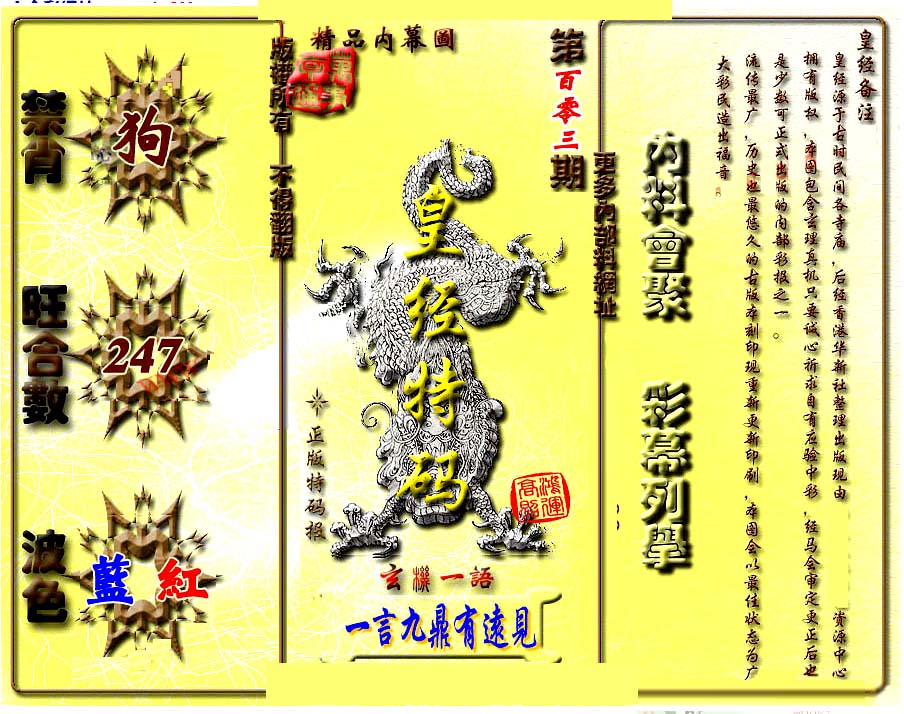 精品内幕圖
版權所有 不得翻版
第百零三期
更多內部料網址
禁肖
狗
旺合數
247
波色
藍 紅
皇经特码
正版特码报
鴻運高照
玄機一語
一言九鼎有遠見
內料會聚 彩幕列舉
皇经备注
皇经源于古时民间各寺庙,后经香港华新社整理出版现由 资源中心
拥有版权,本图包含玄理真机只要诚心祈求自有应验中彩,经马会审定更正后也
是少数可正式出版的内部彩报之一。
流传最广,历史也最悠久的古版本刻印现重新更新印刷,本图会以最佳状态为广
大彩民造出福音